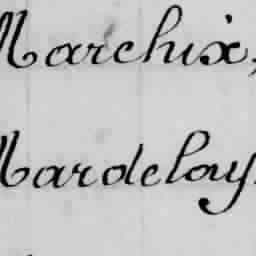 Marchix,
Mardelay